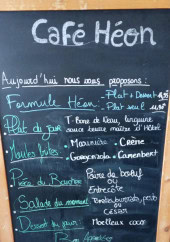 Café Héon
Aujourd'hui nous vous proposons :
Formule Héon - Plat + Dessert
- Plat seul
Plat du jour T-Bone de Veau, linguine
sauce beurre maître d'Hôtel
Moules frites - Marinière - Crème
- Gorgonzola - Camembert
Pièce du Boucher Poire de bœuf
ou
Entrecôte
Salade du moment burrata, pesto
ou
CÉSAR
Dessert du jour : Moelleux coco